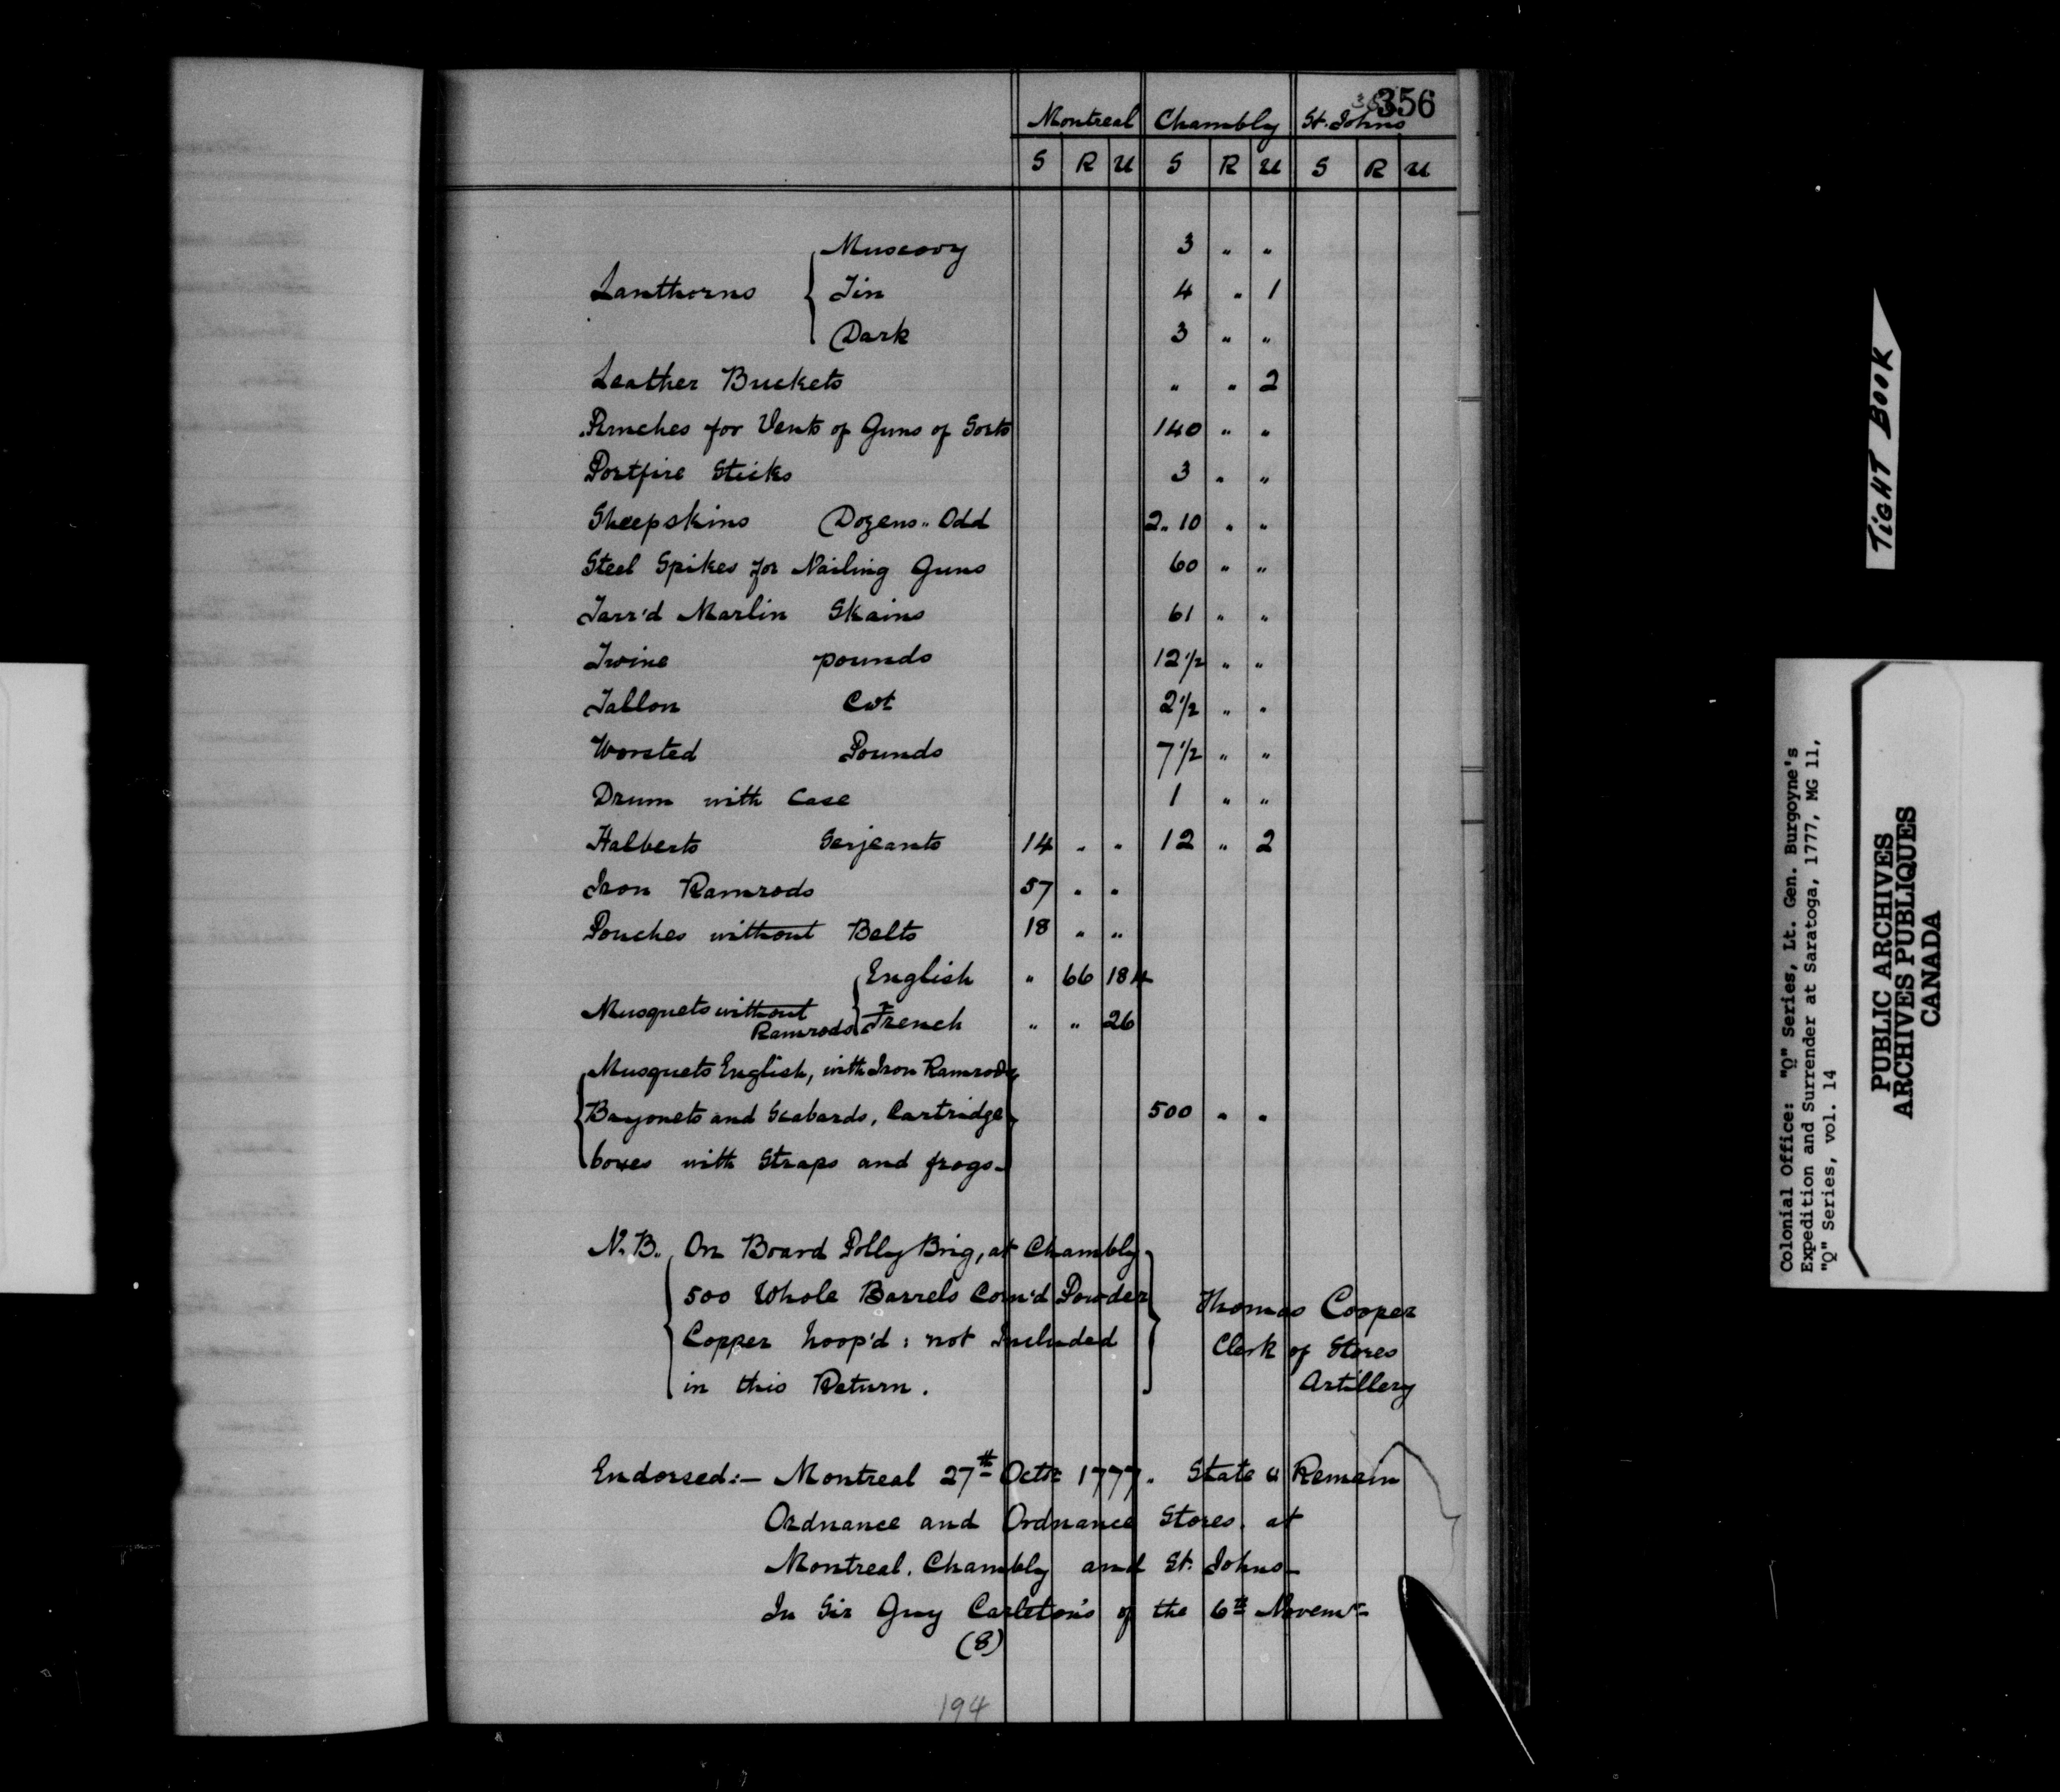 356
Montreal Chambly St. Johns
S R U S R U S R U
Muscovy 3 " "
Lanthorns Tin 4 " 1
Dark 3 " "
Leather Buckets " " 2
Punches for Vents of Guns of Sorts 140 " "
Portfire Sticks 3 " "
Sheepskins Dozens " Odd 2 " 10 " "
Steel Spikes for Nailing Guns 60 " "
Tarr'd Marlin Skains 61 " "
Twine pounds 12 1/2 " "
Tallon Cwt 2 1/2 " "
Worsted Pounds 7 1/2 " "
Drum with Case 1 " "
Halberts Serjeants 14 " " 12 " 2
Iron Ramrods 57 " "
Pouches without Belts 18 " "
English " 66 184
Musquets without
Ramrods French " " 26
Musquets English, with Iron Ramrods,
Bayonets and Scabards, Cartridge 500 " "
boxes with Straps and frogs-
N.B. On Board Polly Brig, at Chambly
500 Whole Barrels Corn'd Powder
Copper hoop'd; not Included
in this Return.
Thomas Cooper
Clerk of Stores
Artillery
Endorsed:- Montreal 27th Octr 1777. State & Remain
Ordnance and Ordnance Stores, at
Montreal, Chambly and St. Johns-
In Sir Guy Carleton's of the 6th Novemr
(8)
194
TIGHT BOOK
Colonial Office: "Q" Series, Lt. Gen. Burgoyne's
Expedition and Surrender at Saratoga, 1777, MG 11,
"Q" Series, vol. 14
PUBLIC ARCHIVES
ARCHIVES PUBLIQUES
CANADA